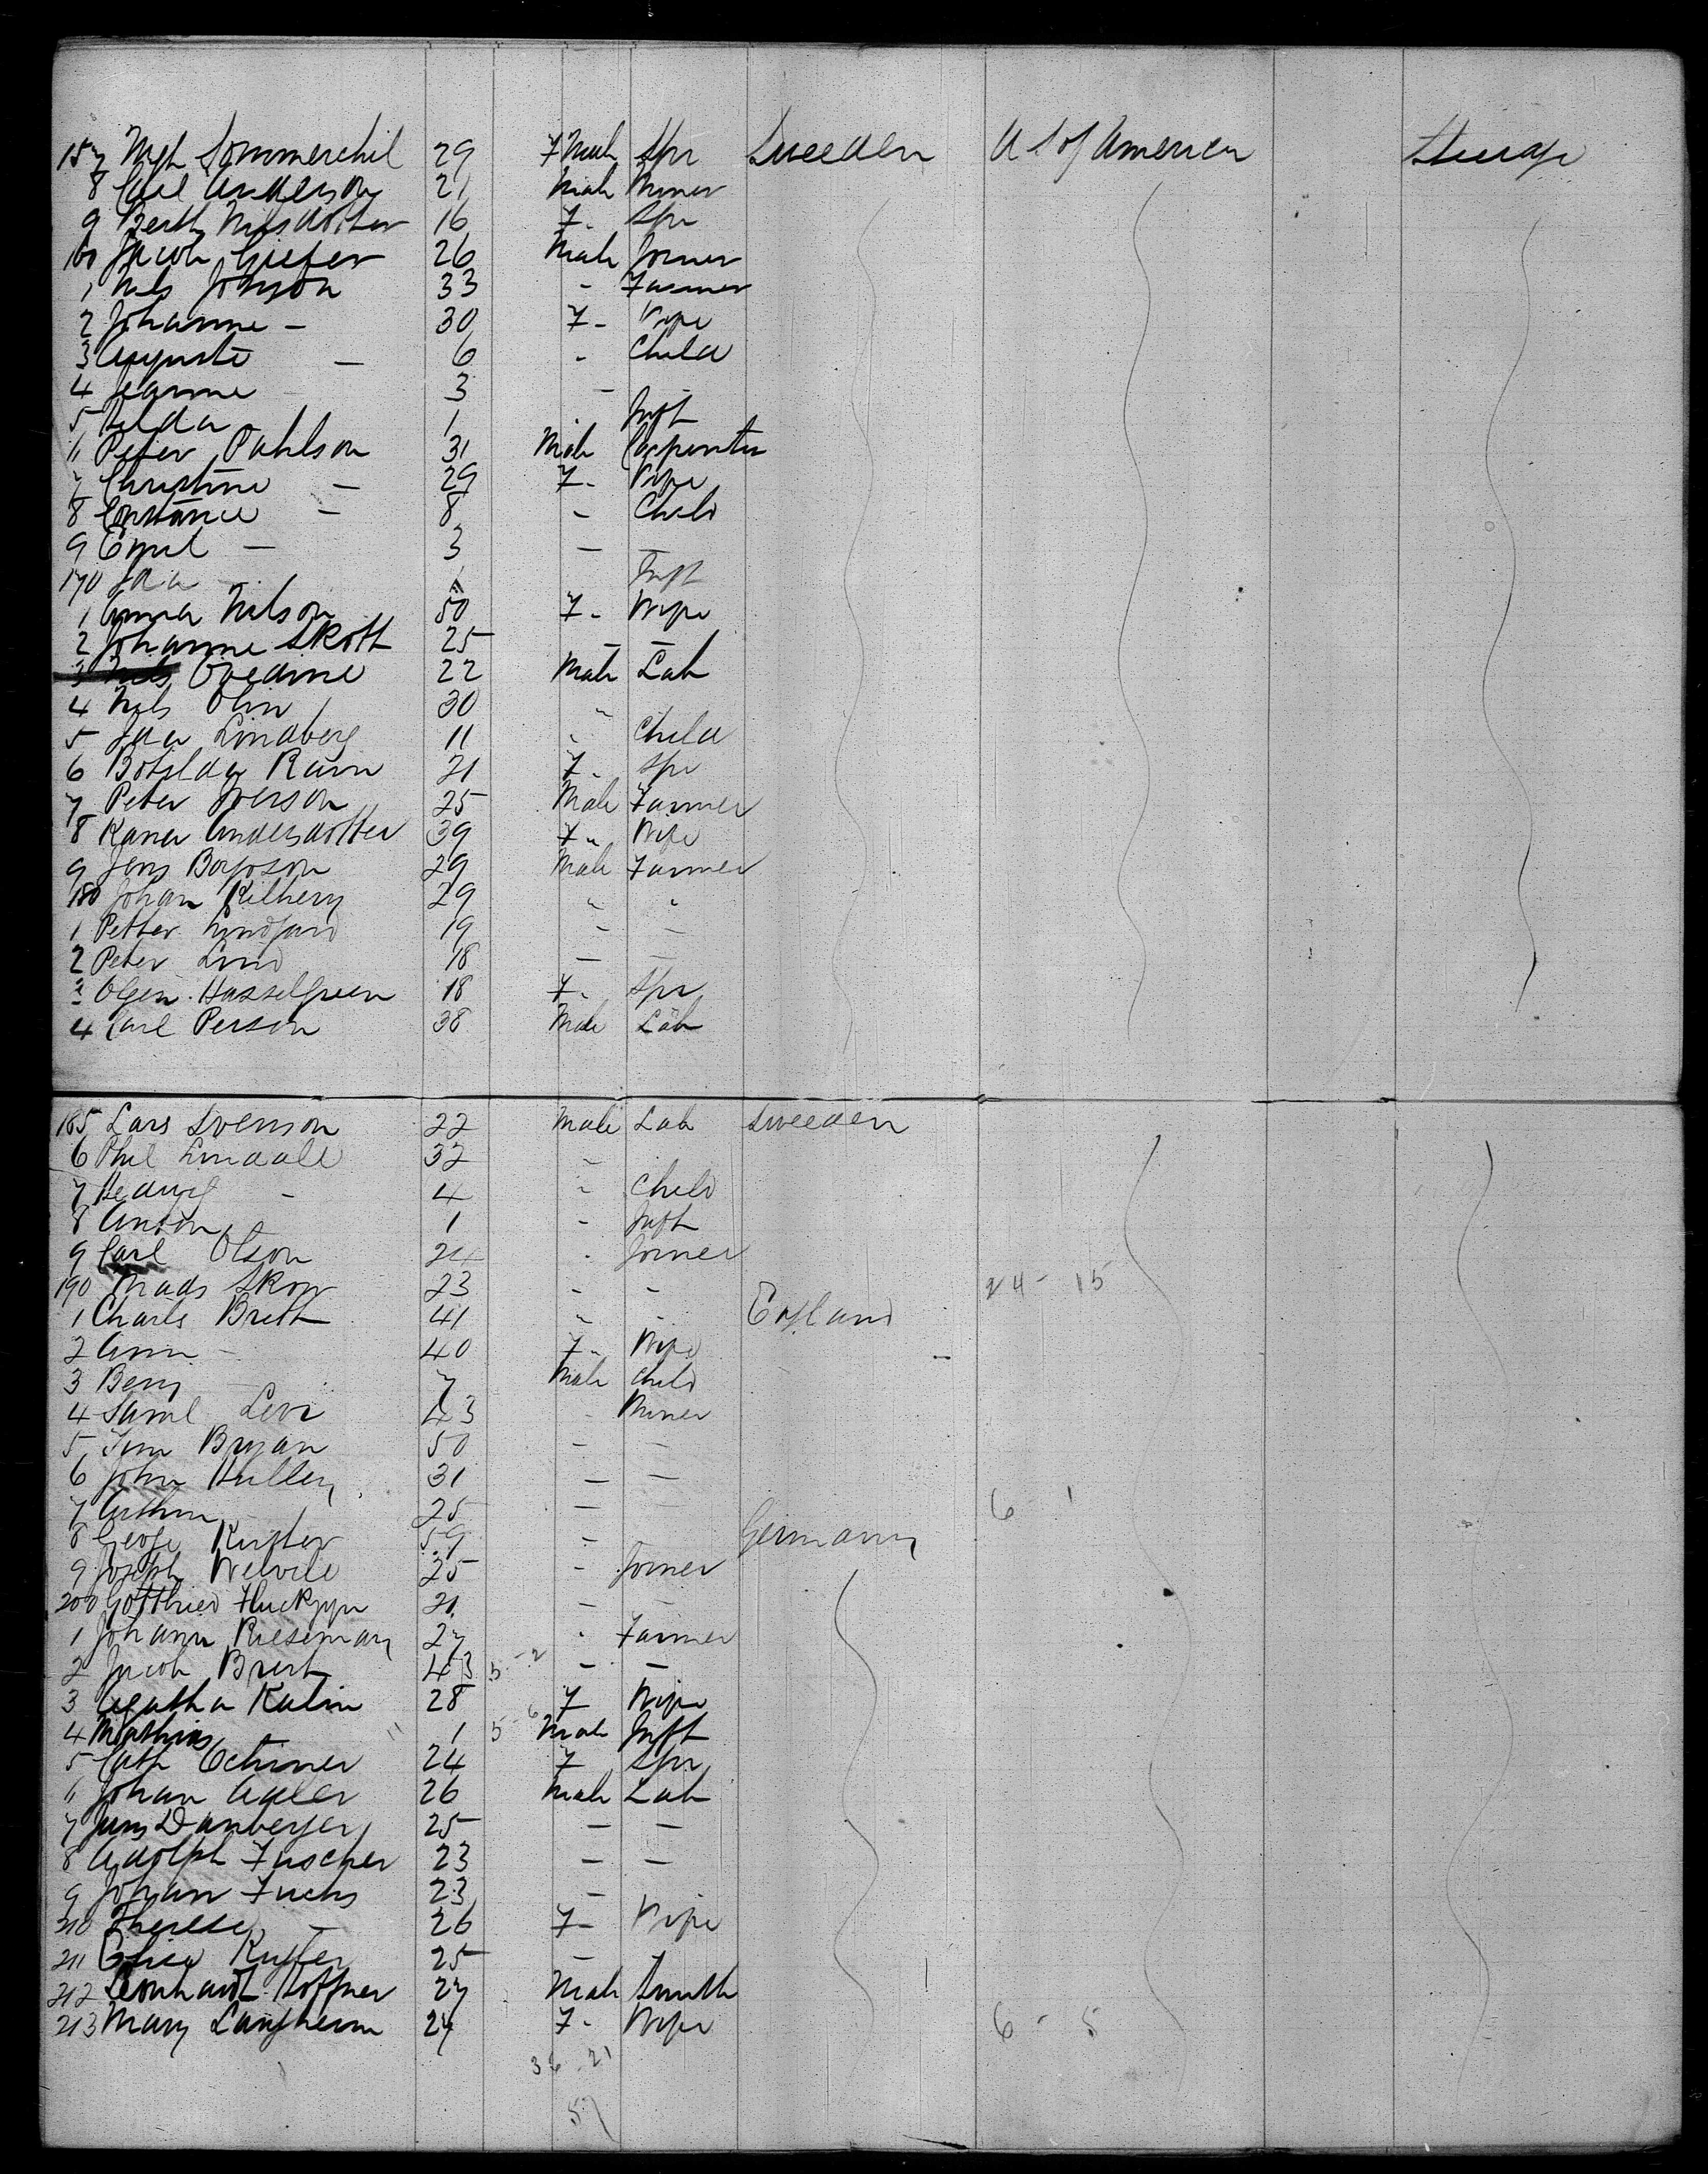 157 Sommerchil 29 F Male Spr Sweeden U S of America Steerage
8 Carl Anderson 21 Male Miner
9 Berth Nilsdotter 16 F. Spr
160 Jacob Griefer 26 Male Joiner
1 Nils Jonson 33 - Farmer
2 Johanne - 30 F - Wife
3 Auguste - 6 - Child
4 Jeanne - 3 -
5 Hilda - 1 Inft
6 Peter Pahlson 31 Male Carpenter
7 Christine - 29 F - Wife
8 Constance - 8 - Child
9 Emil - 3 - -
170 Ida - Inft
1 Anna Nilson 50 F - Wife
2 Johanne Skott 25 - -
3 Nils Bredine 22 Male Lab
4 Nils Olin 30 "
5 Ida Lindberg 11 " Child
6 Botilda Ravn 21 F. Spr
7 Peter Iverson 25 Male Farmer
8 Karna Andersdotter 39 F " Wife
9 Jens Borgoson 29 Male Farmer
180 Johan Kilberg 29 " "
1 Petter 19 - -
2 Peter Lind 18 - -
3 Olgen. Hasselgreen 18 F. Spr
4 Carl Person 38 Male Lab
185 Lars Svenson 22 Male Lab Sweeden
6 Phil Lindall 32 -
7 Hedwig - 4 " Child
8 Anton 1 - Inft
9 Carl Olson 24 . Joiner
190 Mads Skow 23 - - 24 - 15
1 Charls Brett 41 " - England
2 Ann - 40 F. Wife
3 Benj - 7 Male Child
4 Saml Levi 43 - Miner
5 Tim Bryan 50 - -
6 John Hulley 31 - -
7 Arthur - 25 - - 6 1
8 George Kuster 59 - Germany
9 Joseph Welvele 25 - Joiner
200 Gottfried 21 - -
1 Johann Rieseman 27 . Farmer
2 Jacob Brest 43 5 - 2 - -
3 Agatha Kalin 28 F Wife
4 Mathias " 1 5 - 6 Male Inft
5 Cath 24 F Spr
6 Johan Adler 26 Male Lab
7 Danberger 25 - -
8 Adolph Fuscher 23 - -
9 Johan Fuchs 23 -
210 Therese - 26 F - Wife
211 Elisa 25 -
212 Leonhardt Hoffner 27 Male Smith
213 Mary Langheim 24 F - Wife 6 - 5
36 - 21
57